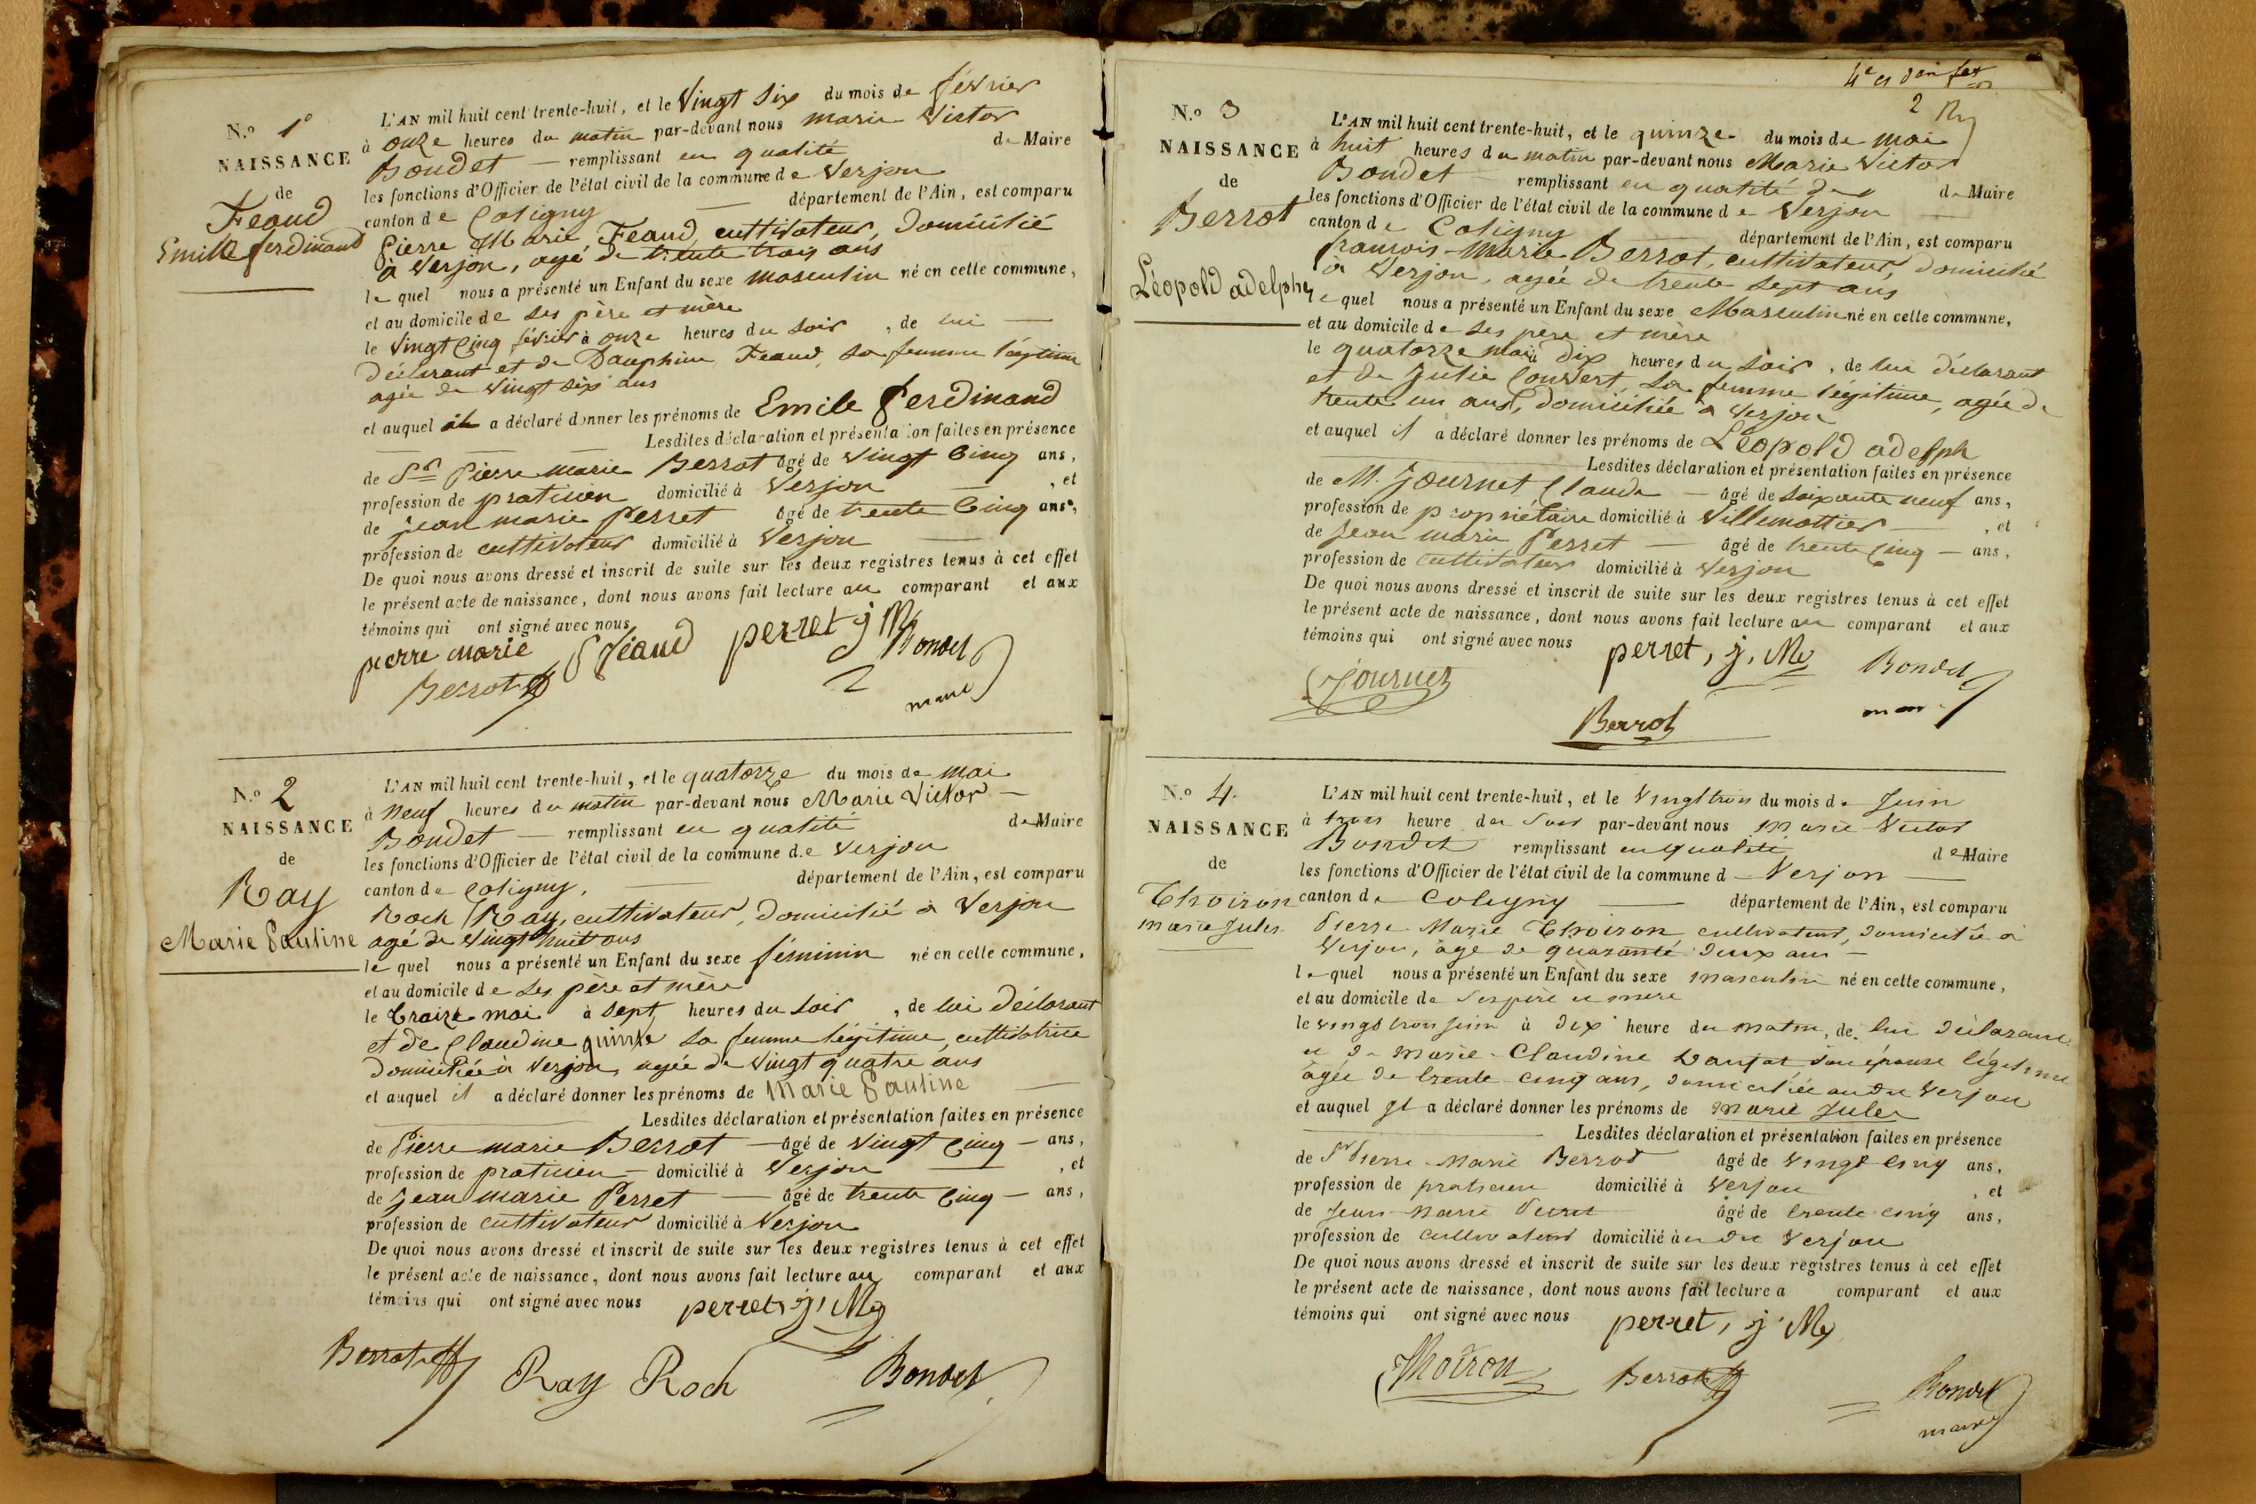 N.o 1o
NAISSANCE
de
Feaud
Emille ferdinand
L'AN mil huit cent trente-huit, et le Vingt Six du mois de février
à onze heures du matin par-devant nous marie Victor
Bondet — remplissant en qualité de Maire
les fonctions d'Officier de l'état civil de la commune de Verjon
canton de Coligny — département de l'Ain, est comparu
Pierre Marie Feaud, cultivateur, domicilié
à Verjon, agé de trente trois ans
lequel nous a présenté un Enfant du sexe masculin né en cette commune,
et au domicile de ses père et mère
le Vingt Cinq février à onze heures du soir, de lui —
déclarant et de Dauphine Feaud, sa femme légitime
agée de vingt six ans
et auquel il a déclaré donner les prénoms de Emile Ferdinand
Lesdites déclaration et présentation faites en présence
de Sr Pierre marie Berrot âgé de vingt Cinq ans,
profession de praticien domicilié à Verjon —, et
de jean marie Perret âgé de trente Cinq ans,
profession de cultivateur domicilié à Verjon —
De quoi nous avons dressé et inscrit de suite sur les deux registres tenus à cet effet
le présent acte de naissance, dont nous avons fait lecture au comparant et aux
témoins qui ont signé avec nous
pierre marie P Féaud perret j M Bondet
Berrot maire
N.o 2
NAISSANCE
de
Ray
Marie Pauline
L'AN mil huit cent trente-huit, et le quatorze du mois de mai
à neuf heures du matin par-devant nous Marie Victor —
Bondet — remplissant en qualité de Maire
les fonctions d'Officier de l'état civil de la commune de Verjon
canton de Coligny. — département de l'Ain, est comparu
Roch Ray, cultivateur, domicilié à Verjon
agé de vingt huit ans
lequel nous a présenté un Enfant du sexe féminin né en cette commune,
et au domicile de ses père et mère
le treize mai à sept heures du soir, de lui déclarant
et de Claudine quinte sa femme légitime, cultivatrice
domiciliée à Verjon, agée de vingt quatre ans
et auquel il a déclaré donner les prénoms de Marie Pauline —
Lesdites déclaration et présentation faites en présence
de Pierre marie Berrot — âgé de vingt Cinq — ans,
profession de praticien — domicilié à Verjon —, et
de jean marie Perret — âgé de trente Cinq — ans,
profession de cultivateur domicilié à Verjon
De quoi nous avons dressé et inscrit de suite sur les deux registres tenus à cet effet
le présent acte de naissance, dont nous avons fait lecture au comparant et aux
témoins qui ont signé avec nous perret, j, M
Berrot Ray Roch Bondet
2
N.o 3
NAISSANCE
de
Berrot
Léopold adelphe
L'AN mil huit cent trente-huit, et le quinze du mois de mai
à huit heures du matin par-devant nous Marie Victor
Bondet — remplissant en qualité de Maire
les fonctions d'Officier de l'état civil de la commune de Verjon —
canton de Coligny — département de l'Ain, est comparu
françois-Marie Berrot, cultivateur, domicilié
à Verjon, agée de trente sept ans
lequel nous a présenté un Enfant du sexe Masculin né en cette commune,
et au domicile de ses père et mère
le quatorze mai à dix heures du soir, de lui déclarant
et de Julie Convert, sa femme légitime, agée de
trente un ans, domiciliée à Verjon
et auquel il a déclaré donner les prénoms de Léopold adelph
Lesdites déclaration et présentation faites en présence
de M. Journet, Claude — âgé de soixante neuf ans,
profession de propriétaire domicilié à Villemottier —, et
de Jean marie Perret — âgé de trente Cinq — ans,
profession de cultivateur domicilié à Verjon
De quoi nous avons dressé et inscrit de suite sur les deux registres tenus à cet effet
le présent acte de naissance, dont nous avons fait lecture au comparant et aux
témoins qui ont signé avec nous perret, j, M Bondet
Journet maire
Berrot
N.o 4.
NAISSANCE
de
Thoiron
marie Jules
L'AN mil huit cent trente-huit, et le vingt trois du mois de Juin
à trois heure du soir par-devant nous Marie Victor
Bondet remplissant en qualité de Maire
les fonctions d'Officier de l'état civil de la commune d — Verjon —
canton de Coligny — département de l'Ain, est comparu
Pierre Marie Thoiron cultivateur, domicilié à
Verjon, âgé de quarante deux ans —
lequel nous a présenté un Enfant du sexe masculin né en cette commune,
et au domicile de ses père et mère
le vingt trois juin à dix heure du matin, de lui déclarant
et de Marie-Claudine son épouse légitime
âgée de trente-cinq ans, domiciliée audit Verjon
et auquel Il a déclaré donner les prénoms de Marie Jules
Lesdites déclaration et présentation faites en présence
de Sr Pierre-Marie Berrod âgé de vingt-cinq ans,
profession de praticien domicilié à Verjon, et
de Jean-Marie Perret âgé de trente-cinq ans,
profession de cultivateur domicilié audit Verjon
De quoi nous avons dressé et inscrit de suite sur les deux registres tenus à cet effet
le présent acte de naissance, dont nous avons fait lecture a comparant et aux
témoins qui ont signé avec nous perret, j M
Thoiron Berrot Bondet
maire